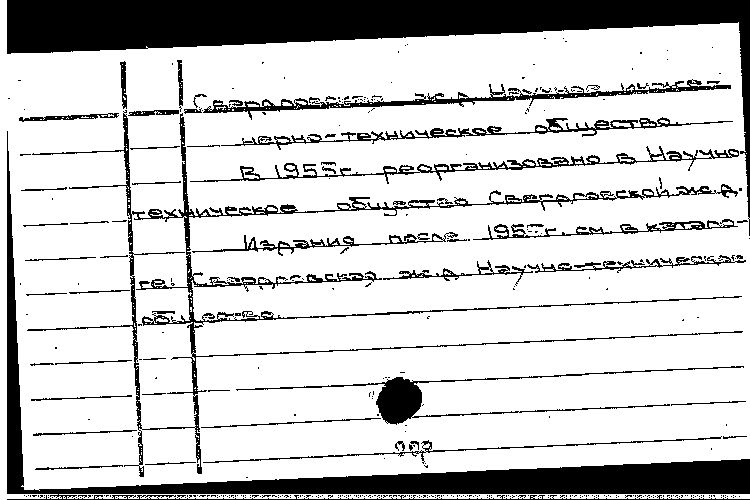 Свердловская ж.д. Научное инже-
нерно-техническое общество.
В 1955г. реорганизовано в Научно-
техническое общество Свердловской ж.д.
Издания после 1955г. см. в катало-
ге: Свердловская ж.д. Научно-техническое
общество.